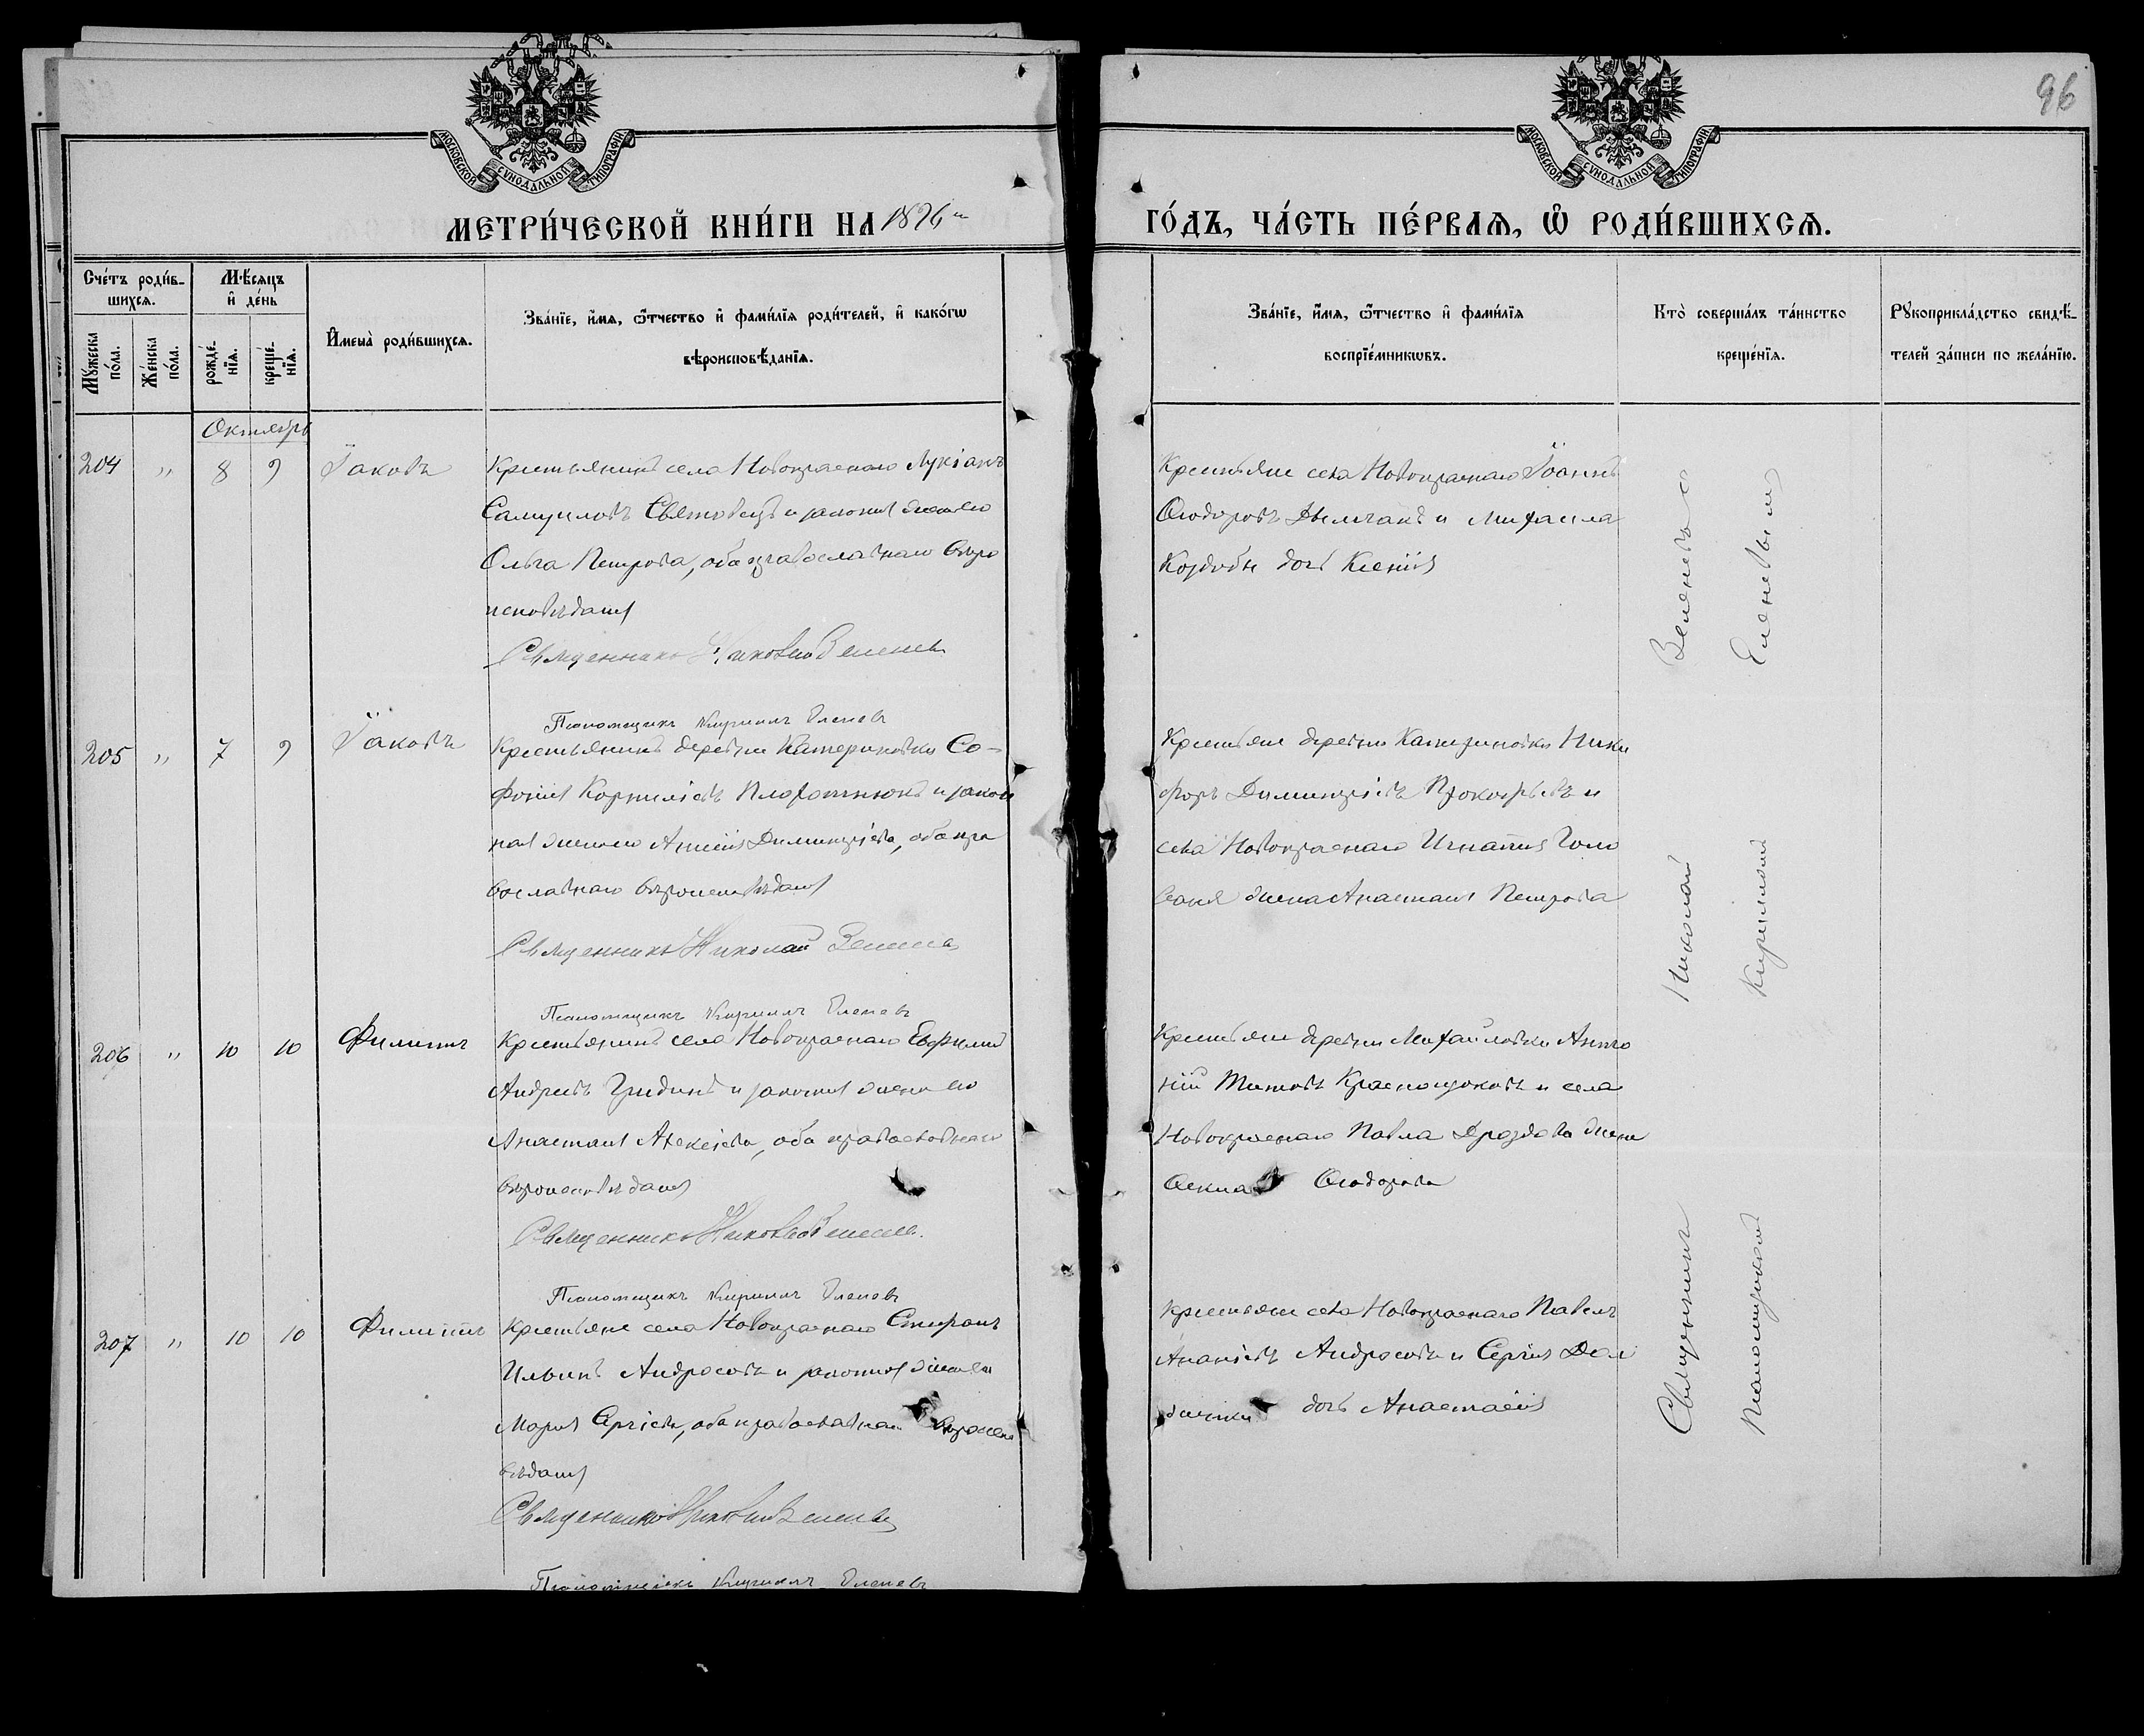 96
МОСКОВСКОЙ СѴНОДАЛЬНОЙ ТИПОГРАФІИ
МОСКОВСКОЙ СѴНОДАЛЬНОЙ ТИПОГРАФІИ
МЕТРИ́ЧЕСКОЙ КНИ́ГИ НА 1896
ГО́ДЪ, ЧА́СТЬ ПЕ́РВАЯ, Ѽ РОДИ́ВШИХСЯ.
Сче́тъ роди́в-
шихся.
Мꙋжеска по́ла.
Же́нска по́ла.
Мѣ́сяцъ
и҆ де́нь
рожде́-
нїѧ.
креще́-
нїѧ.
И҆мена̀ роди́вшихся.
Зва́нїе, и҆́мѧ, ѻ҆́тчество и҆ фами́лїѧ роди́телей, и҆ како́гѡ
вѣроисповѣ́данїѧ.
Зва́нїе, и҆́мѧ, ѻ҆́тчество и҆ фами́лїѧ
воспрїе́мникѡвъ.
Кто̀ соверша́лъ та́инство
креще́нїѧ.
Рꙋкоприкла́дство свидѣ́-
телей за́писи по жела́нїю.
Октябрь
204 " 8 9 Іаковъ
Крестьянинъ села Новокраснаго Лукіанъ
Самуиловъ и законная жена его
Ольга Петрова, оба православнаго вѣро
исповѣданія
Священникъ Николай Зеленевъ
Псаломщикъ Кириллъ Еленевъ
Крестьяне села Новокраснаго Іоаннъ
Ѳеодоровъ и Михаила
дочь Ксенія
205 " 7 9 Іаковъ
Крестьянинъ деревни Катериновки Со-
фоній Корниліевъ и закон
ная жена его Димитріева, оба пра
вославнаго вѣроисповѣданія
Священникъ Николай Зеленевъ
Псаломщикъ Кириллъ Еленевъ
Крестьяне деревни Катериновки Ники
форъ Димитріевъ Прокофьевъ и
села Новокраснаго Игнатія Голо
жена Анастасія Петрова
206 " 10 10 Филиппъ
Крестьянинъ села Новокраснаго Евфимій
Андреевъ Гридинъ и законная жена его
Анастасія Алексіева, оба православнаго
вѣроисповѣданія
Священникъ Николай Зеленевъ
Псаломщикъ Кириллъ Еленевъ
Крестьяне деревни Михайловки Анто
ній Титовъ Краснощоковъ и села
Новокраснаго Павла Дроздова жена
Ѳеодорова
207 " 10 10 Филиппъ
Крестьяне села Новокраснаго Стефанъ
Ильинъ Андросовъ и законная жена его
Марія Сергіева, оба православнаго вѣроиспо
вѣданія
Священникъ Николай Зеленевъ
Псаломщикъ Кириллъ Еленевъ
Крестьяне села Новокраснаго Павелъ
Ананіевъ Андросовъ и Сергія
дочь Анастасія
Священникъ Николай Зеленевъ съ
Псаломщикомъ Кирилломъ Еленевымъ